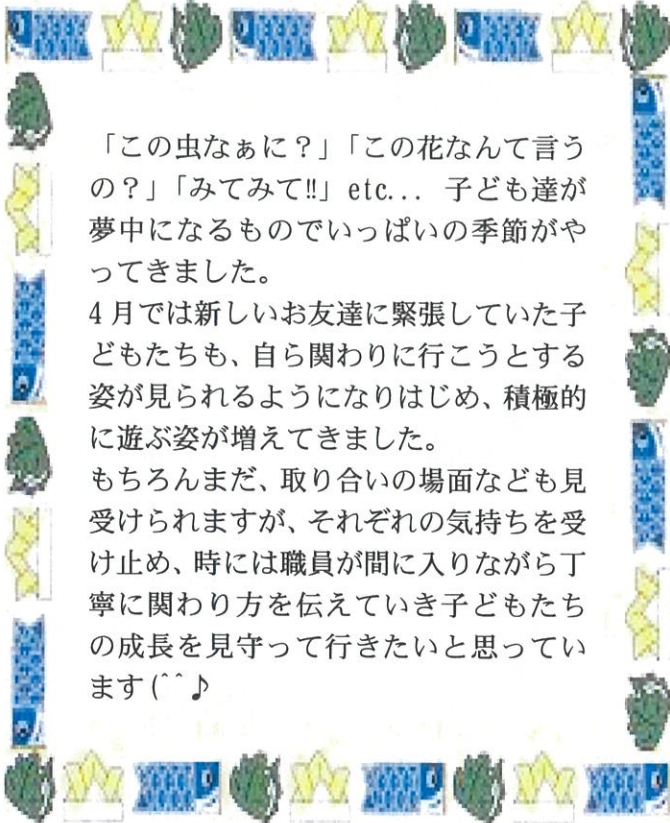 「この虫なぁに？」「この花なんて言う
の？」「みてみて‼」etc... 子ども達が
夢中になるものでいっぱいの季節がや
ってきました。
4月では新しいお友達に緊張していた子
どもたちも、自ら関わりに行こうとする
姿が見られるようになりはじめ、積極的
に遊ぶ姿が増えてきました。
もちろんまだ、取り合いの場面なども見
受けられますが、それぞれの気持ちを受
け止め、時には職員が間に入りながら丁
寧に関わり方を伝えていき子どもたち
の成長を見守って行きたいと思ってい
ます(^^♪